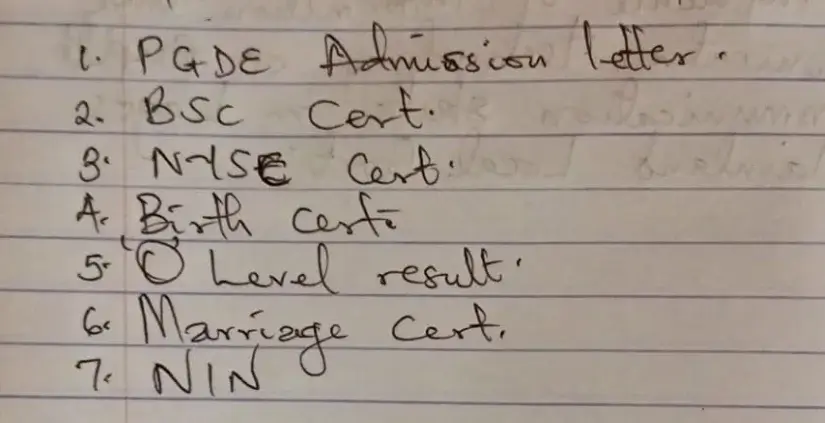 1. PGDE Admission letter.
2. BSC Cert.
3. NYSC Cert.
4. Birth cert.
5. 'O' Level result.
6. Marriage Cert.
7. NIN